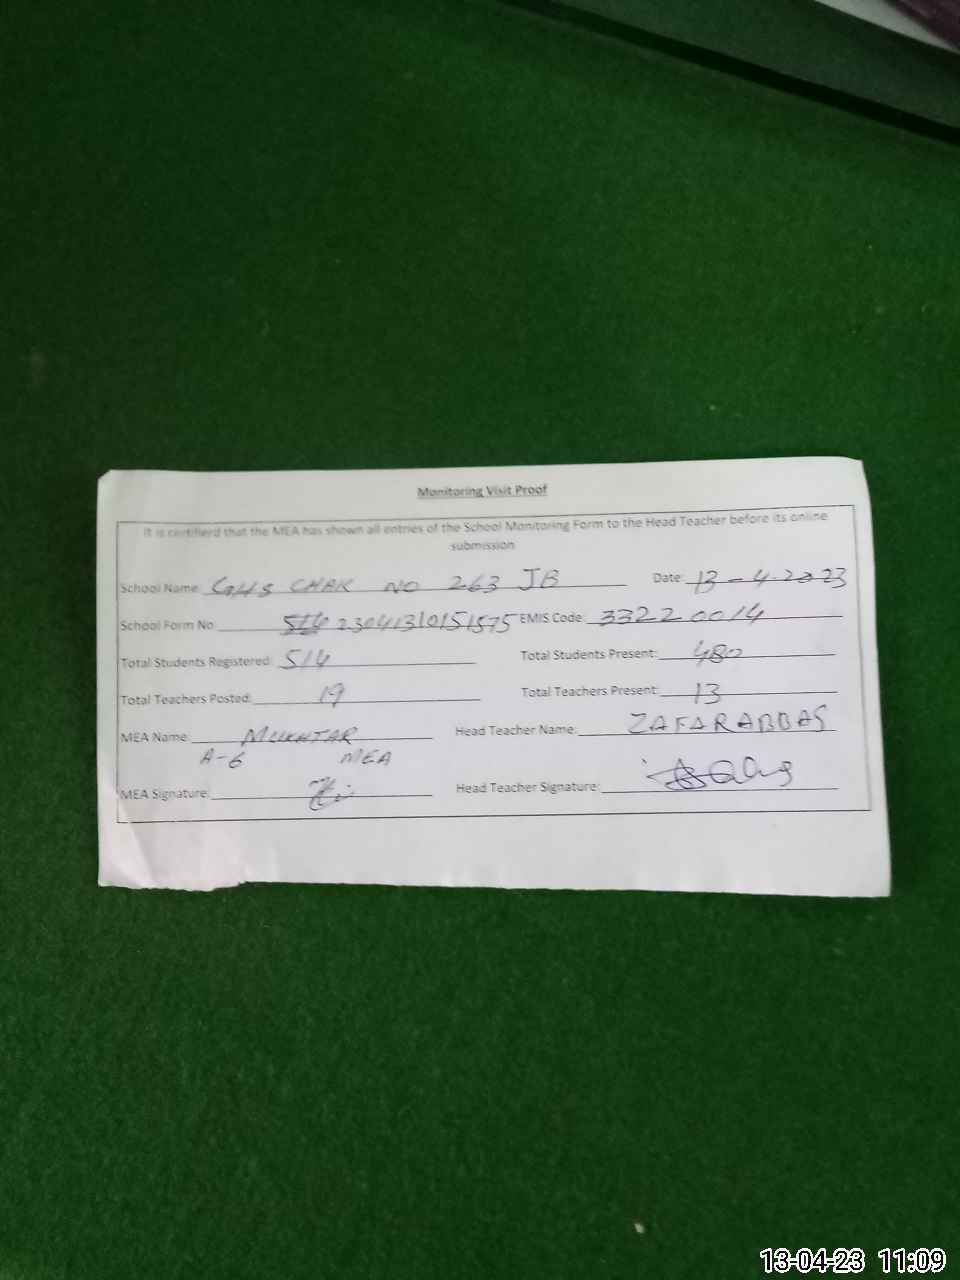 Monitoring Visit Proof
It is certifierd that the MEA has shown all entries of the School Monitoring Form to the Head Teacher before its online
submission
School Name: GHS CHAK NO 263 JB Date: 13-4-2023
School Form No 23041310151575 EMIS Code: 33220014
Total Students Registered: 514 Total Students Present: 480
Total Teachers Posted: 19 Total Teachers Present: 13
MEA Name: MUKHTAR Head Teacher Name: ZAFAR ABBAS
A-6 MEA
MEA Signature: Head Teacher Signature:
13-04-23 11:09